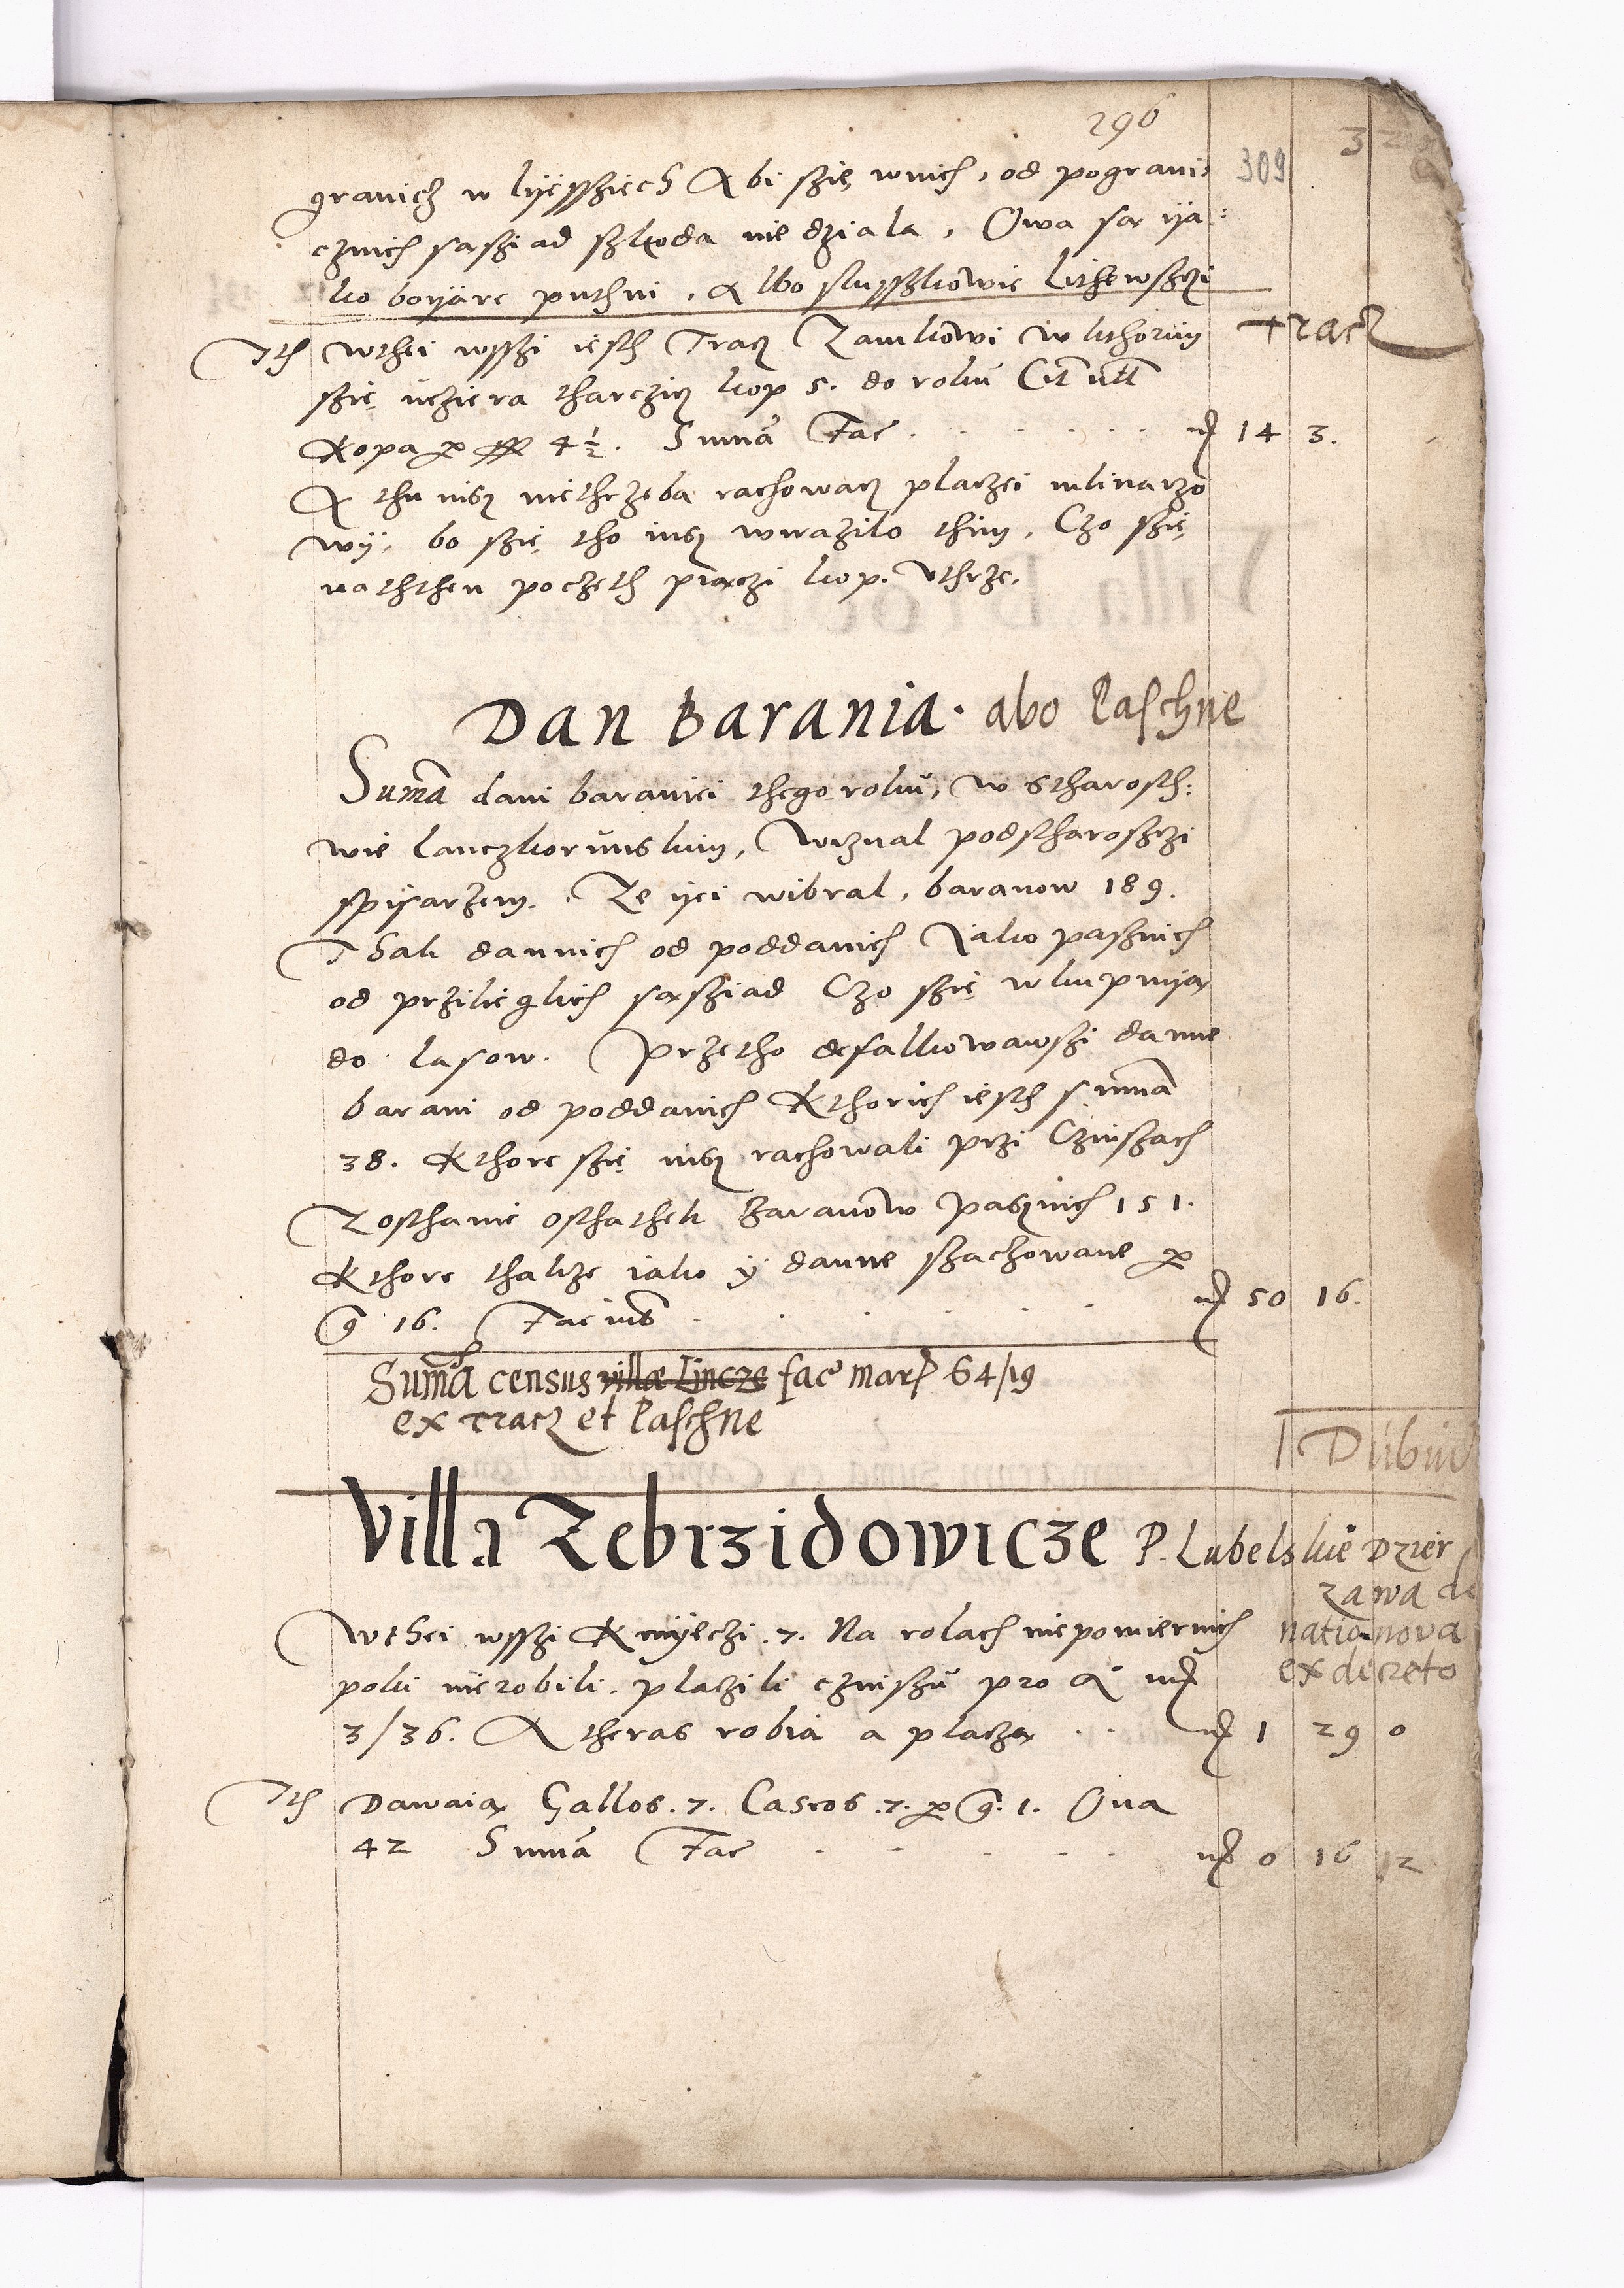 296
309
granicz w lyessziech Abi szię wnich, od pogranі
cznich sąsziad szkoda nie dziala, Owa są ya:
ko boyare puthni, Albo sluszkowie lithewsczi
Ith wthei wsszi iesth Tracz Zamkowi w kthorim
Tracz
szię ucziera tharczicz kop 5. do roku
Kopa per 4½. Summa Fac mr 14 3.
A thu nisz nie thrzeba rachowacz placzei mlinarzo
wÿ, bo szię tho iusz wrazilo thim, Czo szię
naththen poczeth kop. Uthrze.
Dan Barania. abo Paschne
Suma dani baraniei thego roku, w Stharosth:
wie lanczkorunskim, Wiznal podstharosczi
spisarzem. Ze yei wibral, baranow 189.
Thak dannich od poddanich Jako pasznich
od przileglich sąsziad Czo szię wkupuią
do lasow. Przetho defalkowawszi danne
barani od poddanich Kthorich iesth suma
38. Kthore szię iusz rachowali przi Czinszach
Zosthanie osthathek Baranow Pasznich 151.
Kthore thakze iako y danne szachowane per
g 16. Fac int mr 50 16.
Suma census villae Lincze fac marc 64/19
ex tracz et Paschne
Villa Zebrzidowicze P. Lubelskie Dzier
zawa do
natio nova
ex decreto
Wthei wsszi Kmyeczi .7. Na rolach niepomiernich
poki nie robili. placzili czinszu pro A° mr
3/36. A theras robią a placzą mr 1 29 0
Ith Dawaią Gallos .7. Caseos .7. per g. 1. Ova
42 Summa Fac mr 0 16 12